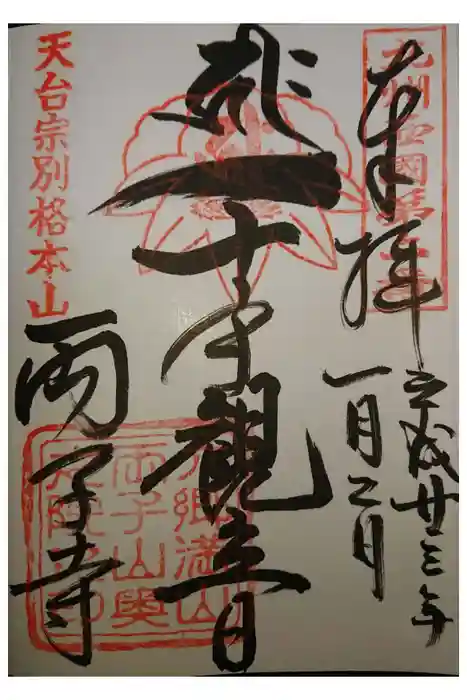 奉拝
九州西國第六番
平成廿三年
一月二日
千手觀音
天台宗別格本山
両子寺
六郷満山
両子山奥